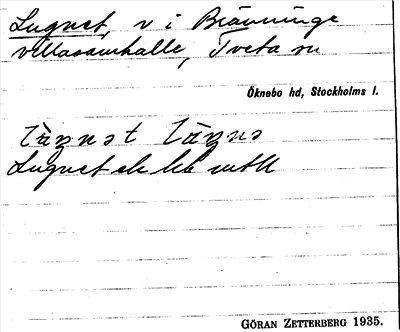 Lugnet, v i Bränninge
villasamhälle, Tveta sn
Öknebo hd, Stockholms l.
Lugnet ek
GÖRAN ZETTERBERG 1935.